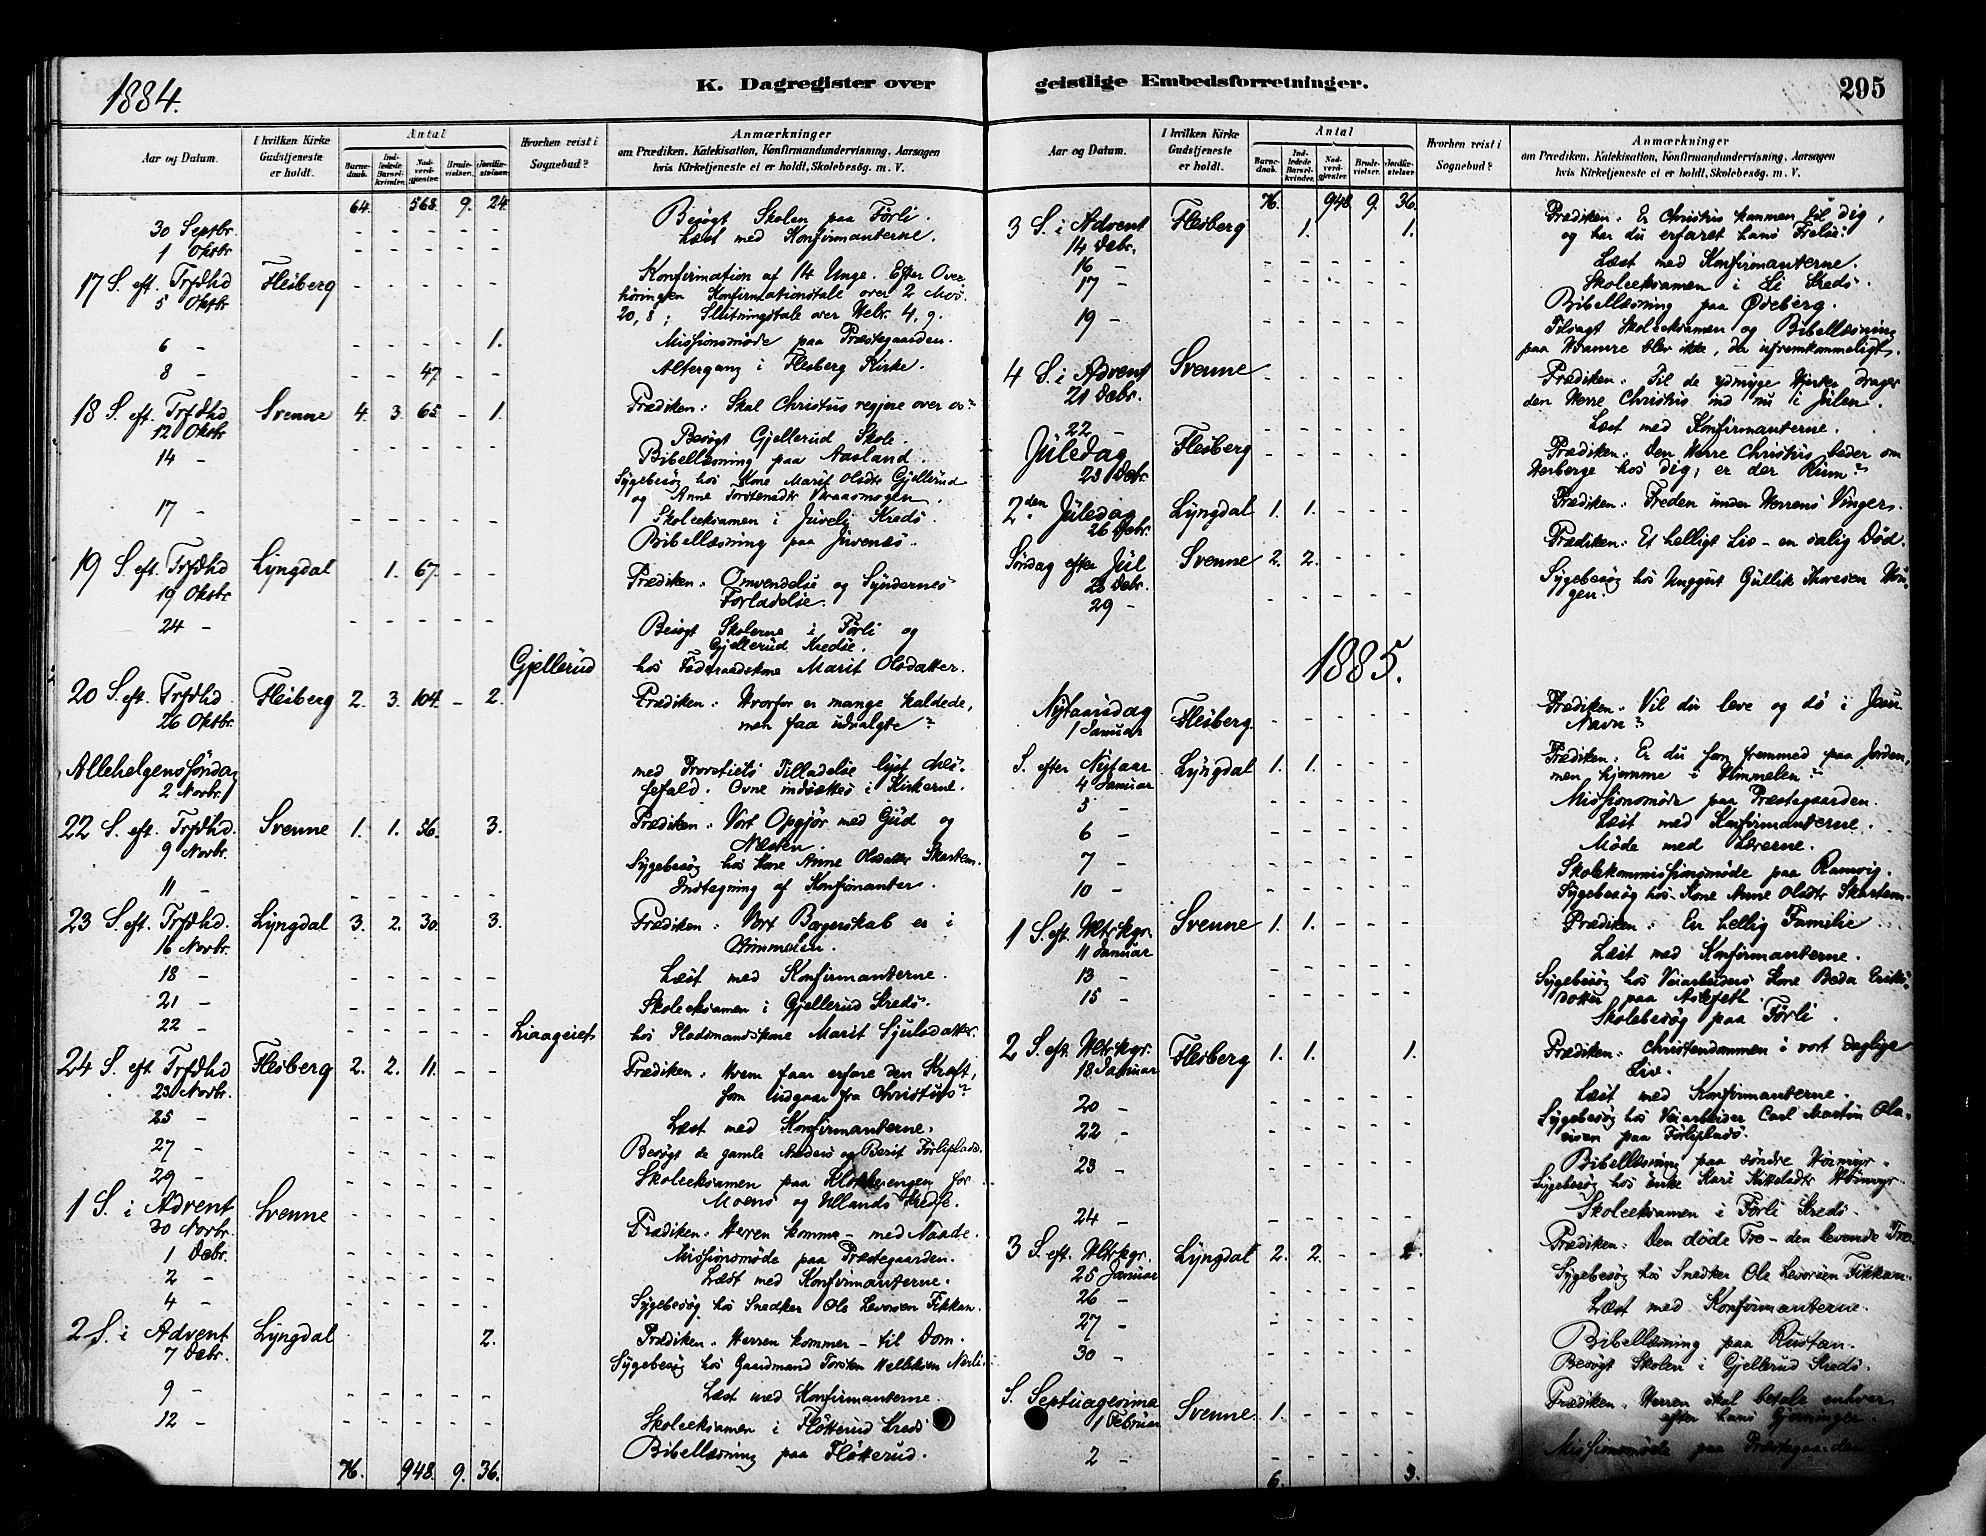 1884.
K. Dagregister over
Aar og Datum.
I hvilken Kirke Gudstjeneste er holdt.
Antal
Barne-daab.
Ind-ledede Barsel-kvinder.
Nad-verd-gjæster.
Brude-vielser.
Jordfæ-stelser.
Hvorhen reist i Sognebud?
Anmærkninger
om Prædiken, Katekisation, Konfirmandundervisning, Aarsagen
hvis Kirketjeneste ei er holdt, Skolebesøg. m. V.
64. 568. 9. 24.
30 Septbr. - - - - - Besøgt Skolen paa Førli.
1 Oktbr. - - - - - Læst med Konfirmanterne.
17 S. eft. Trfdhd Flesberg - - - - - Konfirmation af 14 Unge. Efter Over
5 Oktbr. høringen Konfirmationstale over 2 Mos.
20, 8; Slutningstale over Hebr. 4, 9.
6 - - - - - 1. Missionsmøde paa Præstegaarden.
8 - - - 47. - - Altergang i Flesberg Kirke.
18 S. eft. Trfdhd Svenne 4. 3. 65. - 1. Prædiken: Skal Christus regjere over os?
12 Oktbr. Besøgt Gjellerud Skole.
14 - - - - - - Bibellæsning paa Aasland.
Sygebesøg hos Kone Marit Olsdtr Gjellerud
og Anne Torstensdtr
17 - - - - - - Skoleeksamen i Juvely Kreds.
Bibellæsning paa Juvenes.
19 S. eft. Trfdhd Lyngdal 1. 67. - - Prædiken: Omvendelse og Syndernes
19 Oktbr. Forladelse.
24 - - - - - - Besøgt Skolerne i Førli og
Gjellerud Kredse.
Gjellerud hos Føderaadskone Marit Olsdatter.
20 S. eft. Trfdhd. Flesberg 2. 3. 104. - 2. Prædiken: Hvorfor er mange kaldede,
26 Oktbr. men faa udvalgte?
Allehelgenssøndag med Provstiets Tilladelse lyst Mes-
2 Novbr. sefald. Ovne indsættes i Kirkerne.
22 S. eft. Trfdhd. Svenne 1. 1. 56. 3. Prædiken: Vort Opgjør med Gud og
9 Novbr. Næsten.
Sygebesøg hos Kone Anne Olsdatter
11 - - - - - - Indtegning af Konfirmanter.
23 S. eft. Trfdhd. Lyngdal 3. 2. 30. 3. Prædiken: Vort Borgerskab er i
16 Novbr. Himmelen.
18 - - - - - - Læst med Konfirmanterne.
21 - - - - - - Skoleeksamen i Gjellerud Kreds.
22 - - - - - - Liaageiet hos Pladsmandskone Marit Sjulsdatter.
24 S. eft. Trfdhd Flesberg 2. 2. 11. - - Prædiken: Hvem faar erfare den Kraft,
23 Novbr. som udgaar fra Christus?
25 - - - - - - Læst med Konfirmanterne.
27 - - - - - - Besøgt de gamle Anders og Berit Førliplads.
29 - - - - - - Skoleeksamen paa Klokkerengen for
Moens og Ullands Kredse.
1 S. i Advent Svenne - - - - - Prædiken: Herren kommer - med Naade.
30 Novbr.
1 Debr. - - - - - Missionsmøde paa Præstegaarden.
2 - - - - - - Læst med Konfirmanterne.
4 - - - - - - Sygebesøg hos Snedker Ole Levorsen Fikkan.
2 S. i Advent Lyngdal 2. Prædiken: Herren kommer - til Dom.
7 Debr. Sygebesøg hos Gaardmand Torsten
9 - - - - - - Læst med Konfirmanterne.
12 - - - - - - Skoleeksamen i Fløtterud Kreds
Bibellæsning paa Fløtterud.
76. 948. 9. 36.
geistlige Embedsforretninger.
295
Aar og Datum.
I hvilken Kirke Gudstjeneste er holdt.
Antal
Barne-daab.
Ind-ledede Barsel-kvinder.
Nad-verd-gjæster.
Brude-vielser.
Jordfæ-stelser.
Hvorhen reist i Sognebud?
Anmærkninger
om Prædiken, Katekisation, Konfirmandundervisning, Aarsagen
hvis Kirketjeneste ei er holdt, Skolebesøg. m. V.
76. 948. 9. 36.
3 S. i Advent Flesberg 1. 1. Prædiken: Er Christus kommen til dig,
14 Debr. og har du erfaret hans Frelse?
16 - - - - - - Læst med Konfirmanterne.
17 - - - - - - Skoleeksamen i Li Kreds.
Bibellæsning paa Ødeberg.
19 - - - - - - Tilsagt Skoleeksamen og Bibellæsning
paa blev ikke, da ufremkommeligt.
4 S. i Advent Svenne - - - - - Prædiken: Til de ydmyge Hjerter drager
21 Debr. den Herre Christus ind nu i Julen.
22 - - - - - - Læst med Konfirmanterne.
Juledag Flesberg - - - - - Prædiken: Den Herre Christus beder om
25 Debr. Herberge hos dig; er der Rum?
2den Juledag Lyngdal 1. 1. - - - Prædiken: Freden under Herrens Vinger.
26 Debr.
Søndag efter Jul Svenne 2. 2. - - - Prædiken: Et helligt Liv - en salig Død.
28 Debr.
29 - - - - - - Sygebesøg hos Unggut Gullik Thoresen
1885.
Nytaarsdag Flesberg - - - - - Prædiken: Vil du leve og dø i Jesu
1 Januar Navn?
S. efter Nytaar Lyngdal 1. 1. - - - Prædiken: Er du som fremmed paa Jorden,
4 Januar men hjemme i Himmelen?
5 - - - - - - Missionsmøde paa Præstegaarden.
6 - - - - - - Læst med Konfirmanterne.
Møde med Lærerne.
7 - - - - - - Skolekommissionsmøde paa Ramvig.
10 - - - - - - Sygebesøg hos Kone Anne Olsdtr
1 S. eft. Hltrkgr. Svenne 1. 1. - - - Prædiken: En hellig Familie
11 Januar
13 - - - - - - Læst med Konfirmanterne.
15 - - - - - - Sygebesøg hos Veiarbeiders Kone Beda Eriks-
dotter paa
Skolebesøg paa Førli.
2 S. eft. Hltrkgr. Flesberg 1. 1. 1. Prædiken: Christendommen i vort daglige
18 Januar Liv.
20 - - - - - - Læst med Konfirmanterne.
22 - - - - - - Sygebesøg hos Veiarbeider Carl Martin Ola-
visen paa Førliplads.
23 - - - - - - Bibellæsning paa søndre
Sygebesøg hos Enke Kari Kittelsdtr
24 - - - - - - Skoleeksamen i Førli Kreds.
3 S. eft. Hltrkgr. Lyngdal 2. 2. - - 2. Prædiken: Den døde Tro - den levende Tro.
25 Januar
26 - - - - - - Sygebesøg hos Snedker Ole Levorsen Fikkan.
27 - - - - - - Læst med Konfirmanterne.
30 - - - - - - Bibellæsning paa Rustan.
Besøgt Skolen i Gjellerud Kreds.
S. Septuagesima Svenne 1. - - - - Prædiken. Herren skal betale enhver
1 Februar efter hans Gjerninger.
2 - - - - - - Missionsmøde paa Præstegaarden
6. 3.